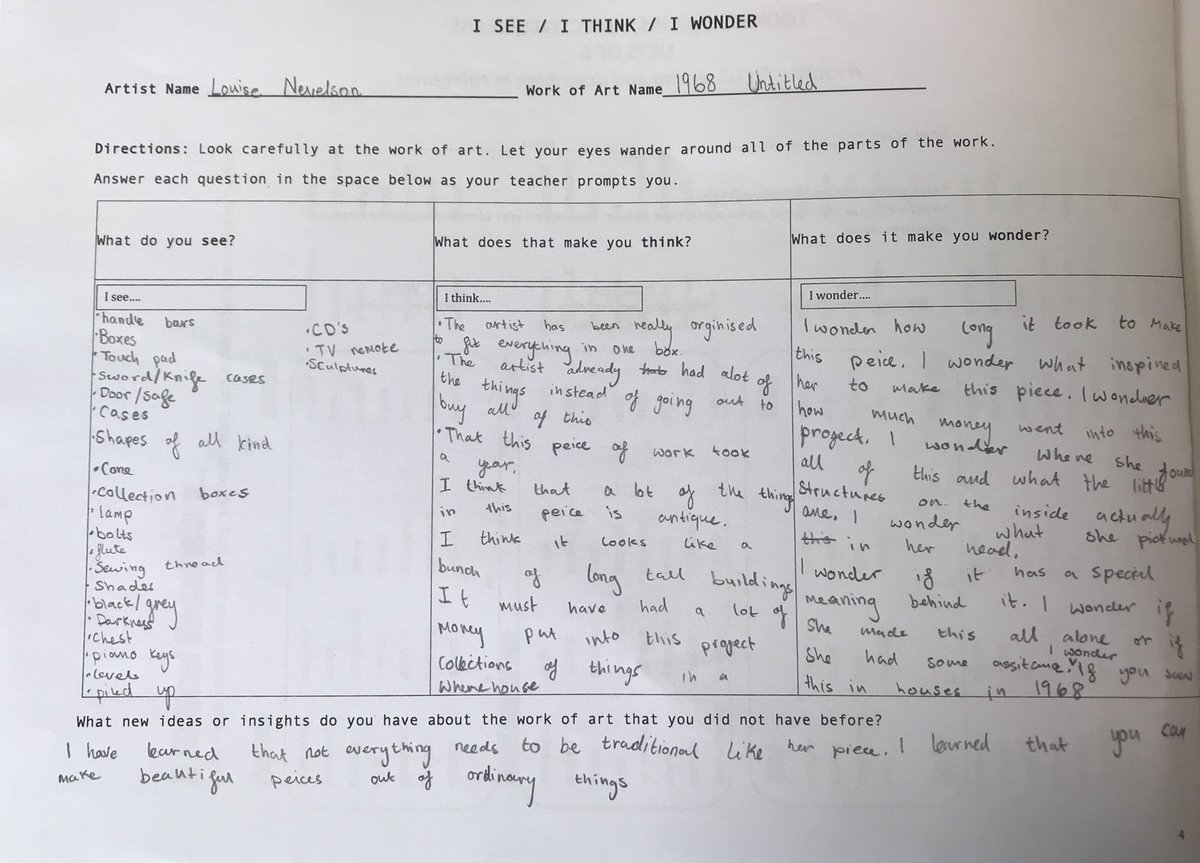 I SEE / I THINK / I WONDER
Artist Name Louise Nevelson Work of Art Name 1968 Untitled
Directions: Look carefully at the work of art. Let your eyes wander around all of the parts of the work.
Answer each question in the space below as your teacher prompts you.
What do you see?
I see....
·handle bars
·Boxes
·Touch pad
·Sword/Knife cases
·Door/Safe
·Cases
·Shapes of all kind
·Cone
·Collection boxes
·lamp
·bolts
·flute
·Sewing thread
·Shades
·black/grey
·Darkness
·Chest
·piano keys
·levels
·piled up
·CD's
·TV remote
·Sculptures
What does that make you think?
I think....
·The artist has been really orginised
to fit everything in one box.
·The artist already had alot of
the things instead of going out to
buy all of this
·That this peice of work took
a year.
I think that a lot of the things
in this peice is antique.
I think it looks like a
bunch of long tall buildings
It must have had a lot of
money put into this progect
Collections of things in a
wherehouse
What does it make you wonder?
I wonder....
I wonder how long it took to make
this peice. I wonder what inspired
her to make this piece. I wonder
how much money went into this
progect. I wonder where she found
all of this and what the little
structures on the inside actually
are. I wonder what she pictured
this in her head.
I wonder if it has a special
meaning behind it. I wonder if
she made this all alone or if
she had some assitance. I wonder if you saw
this in houses in 1968
What new ideas or insights do you have about the work of art that you did not have before?
I have learned that not everything needs to be traditional like her piece. I learned that you can
make beautiful peices out of ordinary things
4